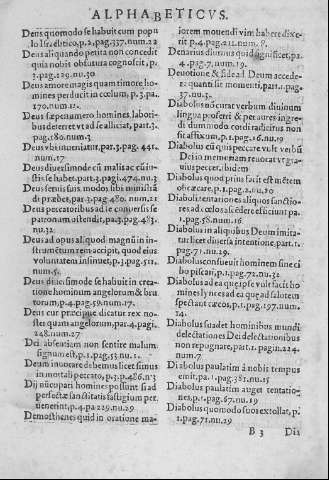 ALPHABETICVS.
Deus quomodo se habuit cum popu
lo Israelitico, p. 2. pag. 337. num. 22
Deus aliquando petita non concedit
quia nobis obfutura cognoscit, p.
3. pag. 129. nu. 30
Deus amore magis quam timore ho
mines perducit in cœlum, p. 3. pa.
170. num. 12.
Deus sæpenumero homines, labori-
bus deterret vt ad se alliciat, part. 3.
pag. 180. num. 3
Deus vbi inueniatur, par. 3. pag. 441.
num. 17
Deus diuersimode cū malis ac cū iu-
stis se habet. part. 3. pag. 474. nu. 3
Deus seruis suis modos sibi ministrā
di præbet, par. 3. pag. 480. num. 21
Deus peccatoribus ad se conuersis se
patronum ostendit, pa. 3. pag. 483.
nu. 32
Deus ad opus aliquod magnū in in-
strumētum rem accipit, quod eius
voluntatem insinuet, p. 3. pag. 511.
num. 5.
Deus diuersimode se habuit in crea-
tione hominum angelorum & bru
torum, p. 4. pag. 56. num. 17.
Deus cur præcipue dicatur rex no-
ster quam angelorum, par. 4. pagi.
248. num. 27
Dei absentiam non sentire malum
signum est, p. 1. pag. 53. nu. 1.
Deum inuocare debemus licet simus
in mortali peccato, p. 3. p. 486. n. 3
Dij nūcupari homines possunt si ad
perfectæ sanctitatis fastigium per-
uenerint, p. 4. pa. 229. nu. 29
Demosthenes quid in oratione ma-
iorem mouendi vim habere dixe-
rit p. 4. pag. 211. num. 8.
Denarius diurnus quid significet, pa.
4. pag. 29. num. 19
Deuotione & fide ad Deum accede-
re quanti sit momenti, part. 1. pag.
37. num. 3.
Diabolus nō curat verbum diuinum
lingua proferri & per aures ingre-
di dummodo cordi radicitus non
sit affixum, p. 1. pag. 16. nu. 19
Diabolus cū quis peccare vult verbū
Dei in memoriam reuocat vt graui-
us peccet, ibidem
Diabolus quod prius facit est mētem
obcæcare, p. 1. pag. 2. nu. 20
Diaboli tentationes aliquos sanctio-
res ad cœlos ascēdere efficiunt pa.
1. pag. 58. num. 16
Diabolus in aliquibus Deum imita-
tur licet diuersa intentione, part. 1.
pag. 71. nu. 29.
Diabolus consueuit hominem sine ci
bo piscari, p. 1. pag. 72. nu. 31
Diabolus ad ea quæ ipse vult facit ho
mines lynces ad ea quæ ad salutem
spectant cæcos, p. 1. pag. 197. num.
24.
Diabolus suadet hominibus mundi
delectationes Dei delectationibus
non repugnare, part. 1. pagin. 224.
num. 7
Diabolus paulatim à nobis tempus
emit, pa. 1. pag. 381. nu. 15
Diabolus paulatim auget tentatio-
nes, p. 1. pag. 67. nu. 19
Diabolus quomodo suos extollat, p.
1. pag. 71. nu. 29
B 3 Dia